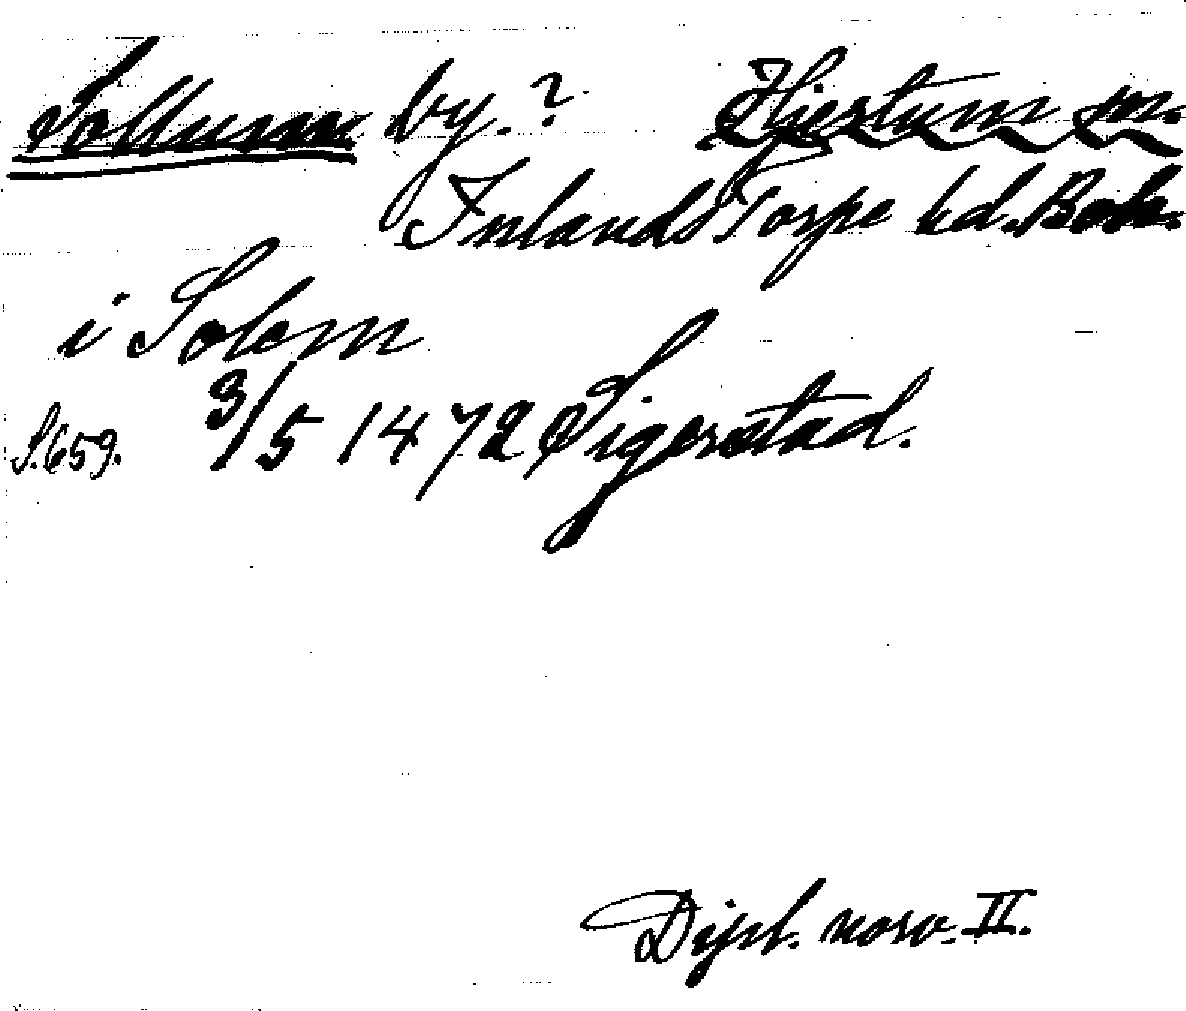 Sollum by.? Hjertum sn.
Inlands Torpe hd. Boh.
i Solem
S.659. 3/5 1472 Sigerstad.
Dipl. norv. II.